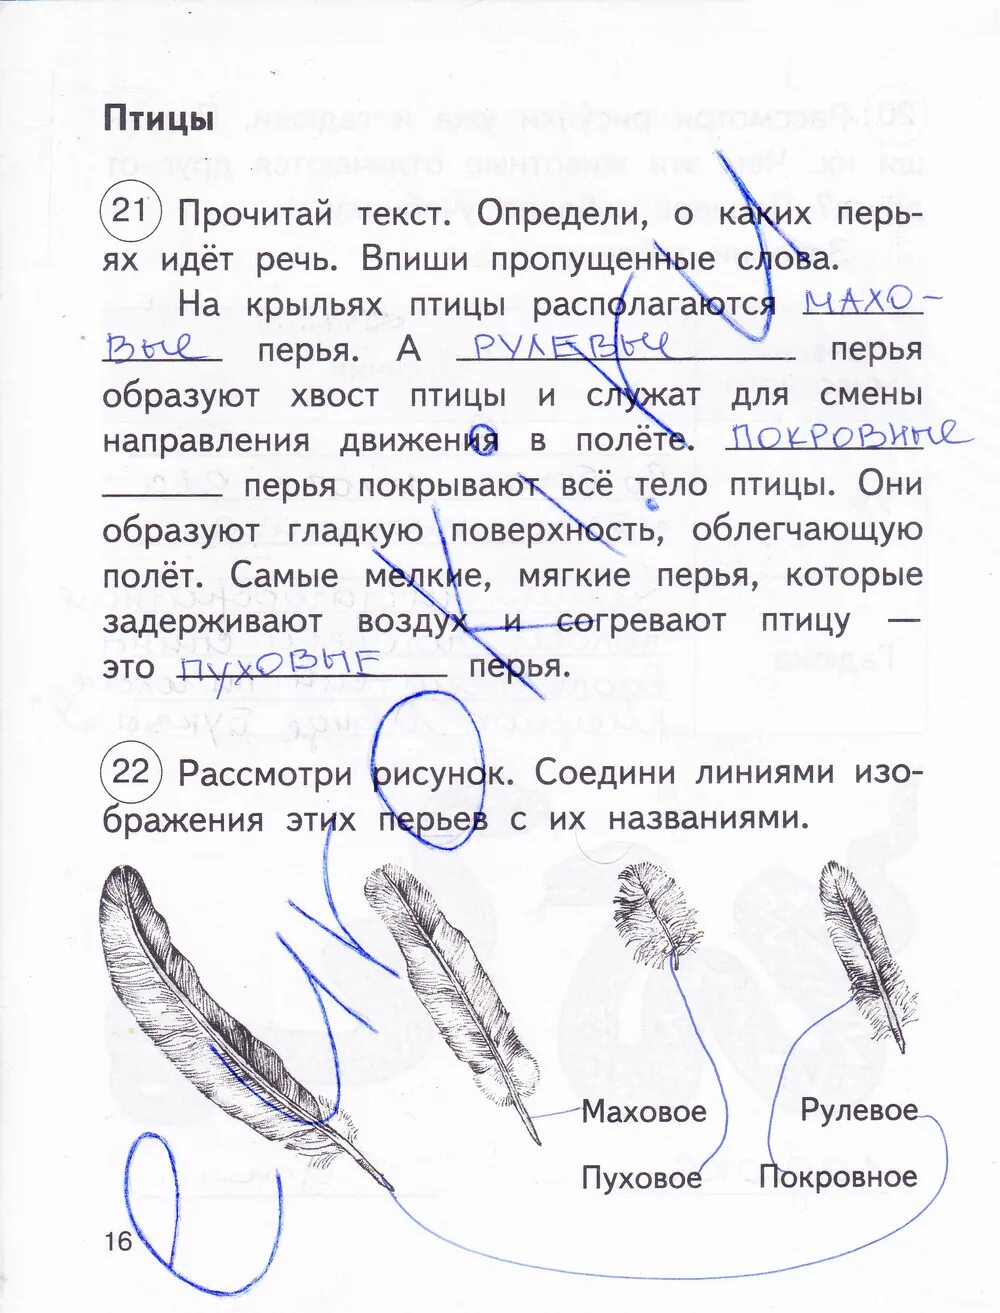 Птицы
21 Прочитай текст. Определи, о каких перь-
ях идёт речь. Впиши пропущенные слова.
На крыльях птицы располагаются МАХО-
ВЫЕ перья. А РУЛЕВЫЕ перья
образуют хвост птицы и служат для смены
направления движения в полёте. ПОКРОВНЫЕ
перья покрывают всё тело птицы. Они
образуют гладкую поверхность, облегчающую
полёт. Самые мелкие, мягкие перья, которые
задерживают воздух и согревают птицу —
это ПУХОВЫЕ перья.
22 Рассмотри рисунок. Соедини линиями изо-
бражения этих перьев с их названиями.
Маховое Рулевое
Пуховое Покровное
16